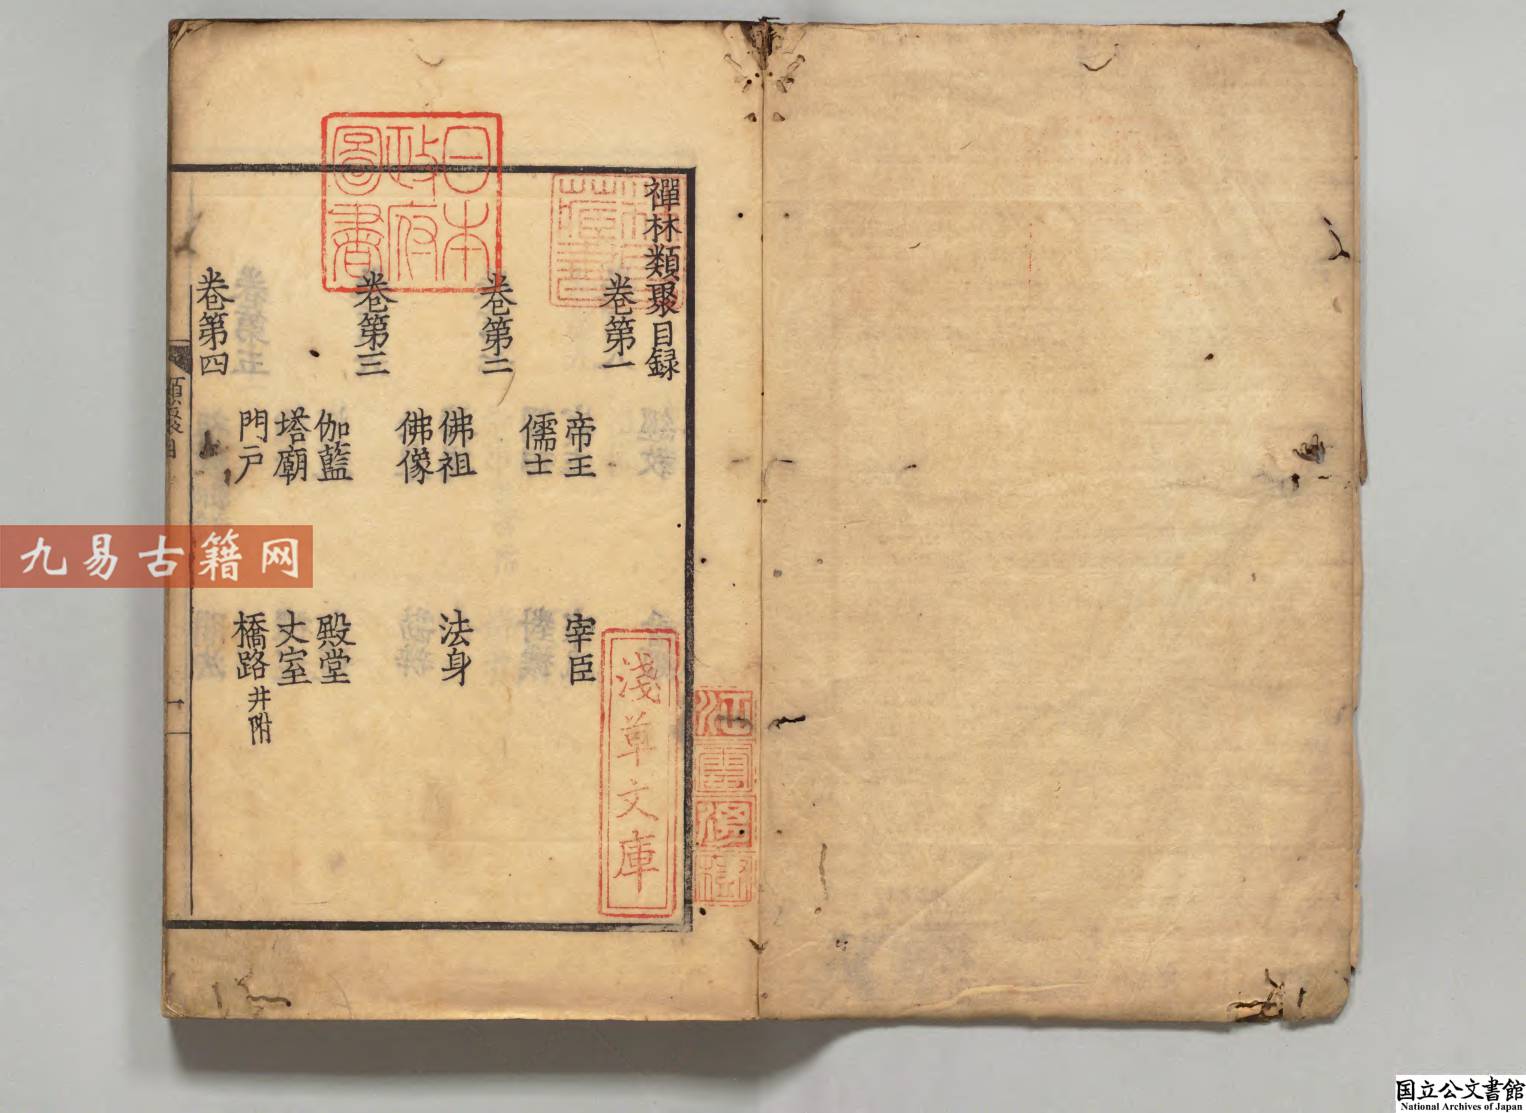 禪林類聚目録
卷第一
帝王 宰臣
儒士
卷第二
佛祖 法身
佛像
卷第三
伽藍 殿堂
塔廟 丈室
門戶 橋路井附
卷第四
日本政府圖書
淺草文庫
江雲渭樹
林氏藏書
類聚目 一
九易古籍网
国立公文書館
National Archives of Japan